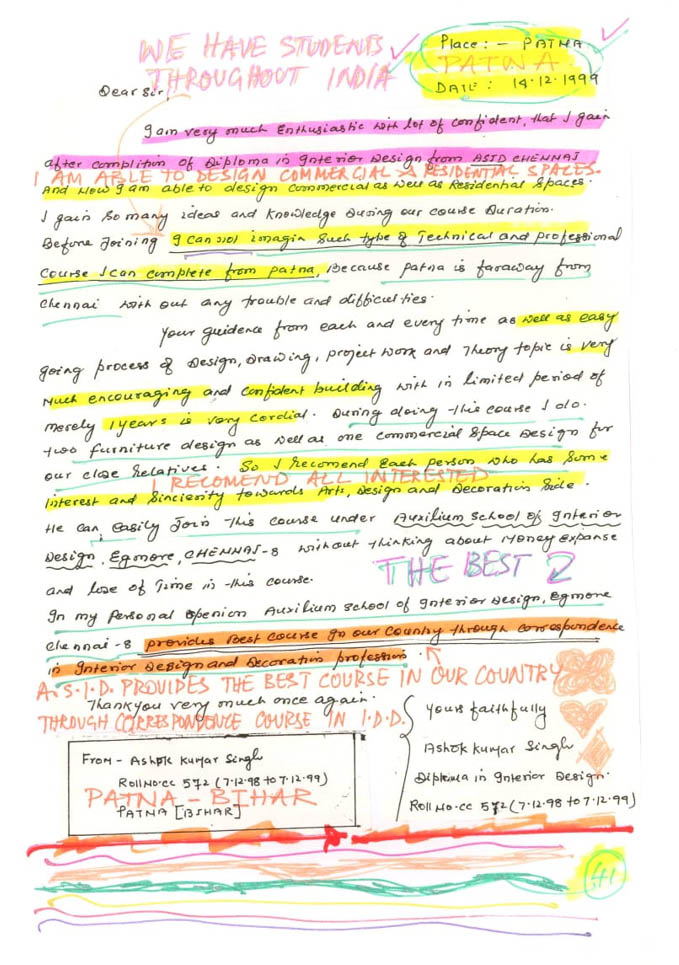 WE HAVE STUDENTS
THROUGHOUT INDIA
Place: - PATNA
PATNA
DATE: 14.12.1999
Dear Sir,
I am very much Enthusiastic with lot of confident, that I gain
after complition of Diploma in Interior Design from ASID CHENNAI
I AM ABLE TO DESIGN COMMERCIAL & RESIDENTIAL SPACES.
And Now I am able to design commercial as well as Residential Spaces.
I gain So many ideas and Knowledge During our course Duration.
Before Joining I can not imagin Such type of Technical and professional
Course I can complete from patna, Because patna is faraway from
Chennai with out any trouble and difficulties.
Your guidence from each and every time as well as easy
going process of Design, Drawing, project work and Theory topic is very
Much encouraging and confident building with in limited period of
merely 1 year is very cordial. During doing this course I do.
two furniture design as well as one commercial Space Design for
our close Relatives. So I Recomend Each person who has Some
I RECOMEND ALL INTERESTED
interest and Sincierity towards Arts, Design and Decoration Side.
He can, Easily Join This course under Auxilium School of Interior
Design, Egmore, CHENNAI-8 without thinking about Money Expanse
THE BEST 2
and lose of Time in this course.
In my Personal openion Auxilium School of Interior Design, Egmore
Chennai-8 provides Best course In our Country through correspondence
in Interior Design and Decoration profession.
A.S.I.D. PROVIDES THE BEST COURSE IN OUR COUNTRY
Thankyou very much once again.
THROUGH CORRESPONDENCE COURSE IN I.D.D.
Yours faithfully
Ashok Kumar Singh
Diploma in Interior Design.
Roll No. cc 572 (7.12.98 to 7.12.99)
From - Ashok Kumar Singh
Roll No. cc 572 (7.12.98 to 7.12.99)
PATNA - BIHAR
PATNA [BIHAR]